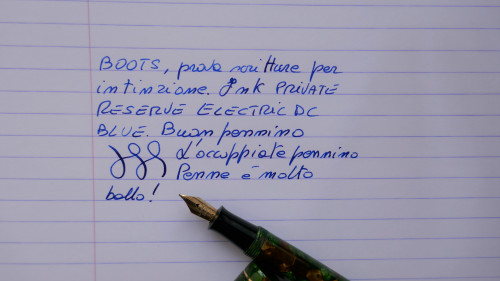 BOOTS, prova scritture per
intinzione. Ink PRIVATE
RESERVE ELECTRIC DC
BLUE. Buon pennino
L'accoppiata pennino
Penne è molto
bello!